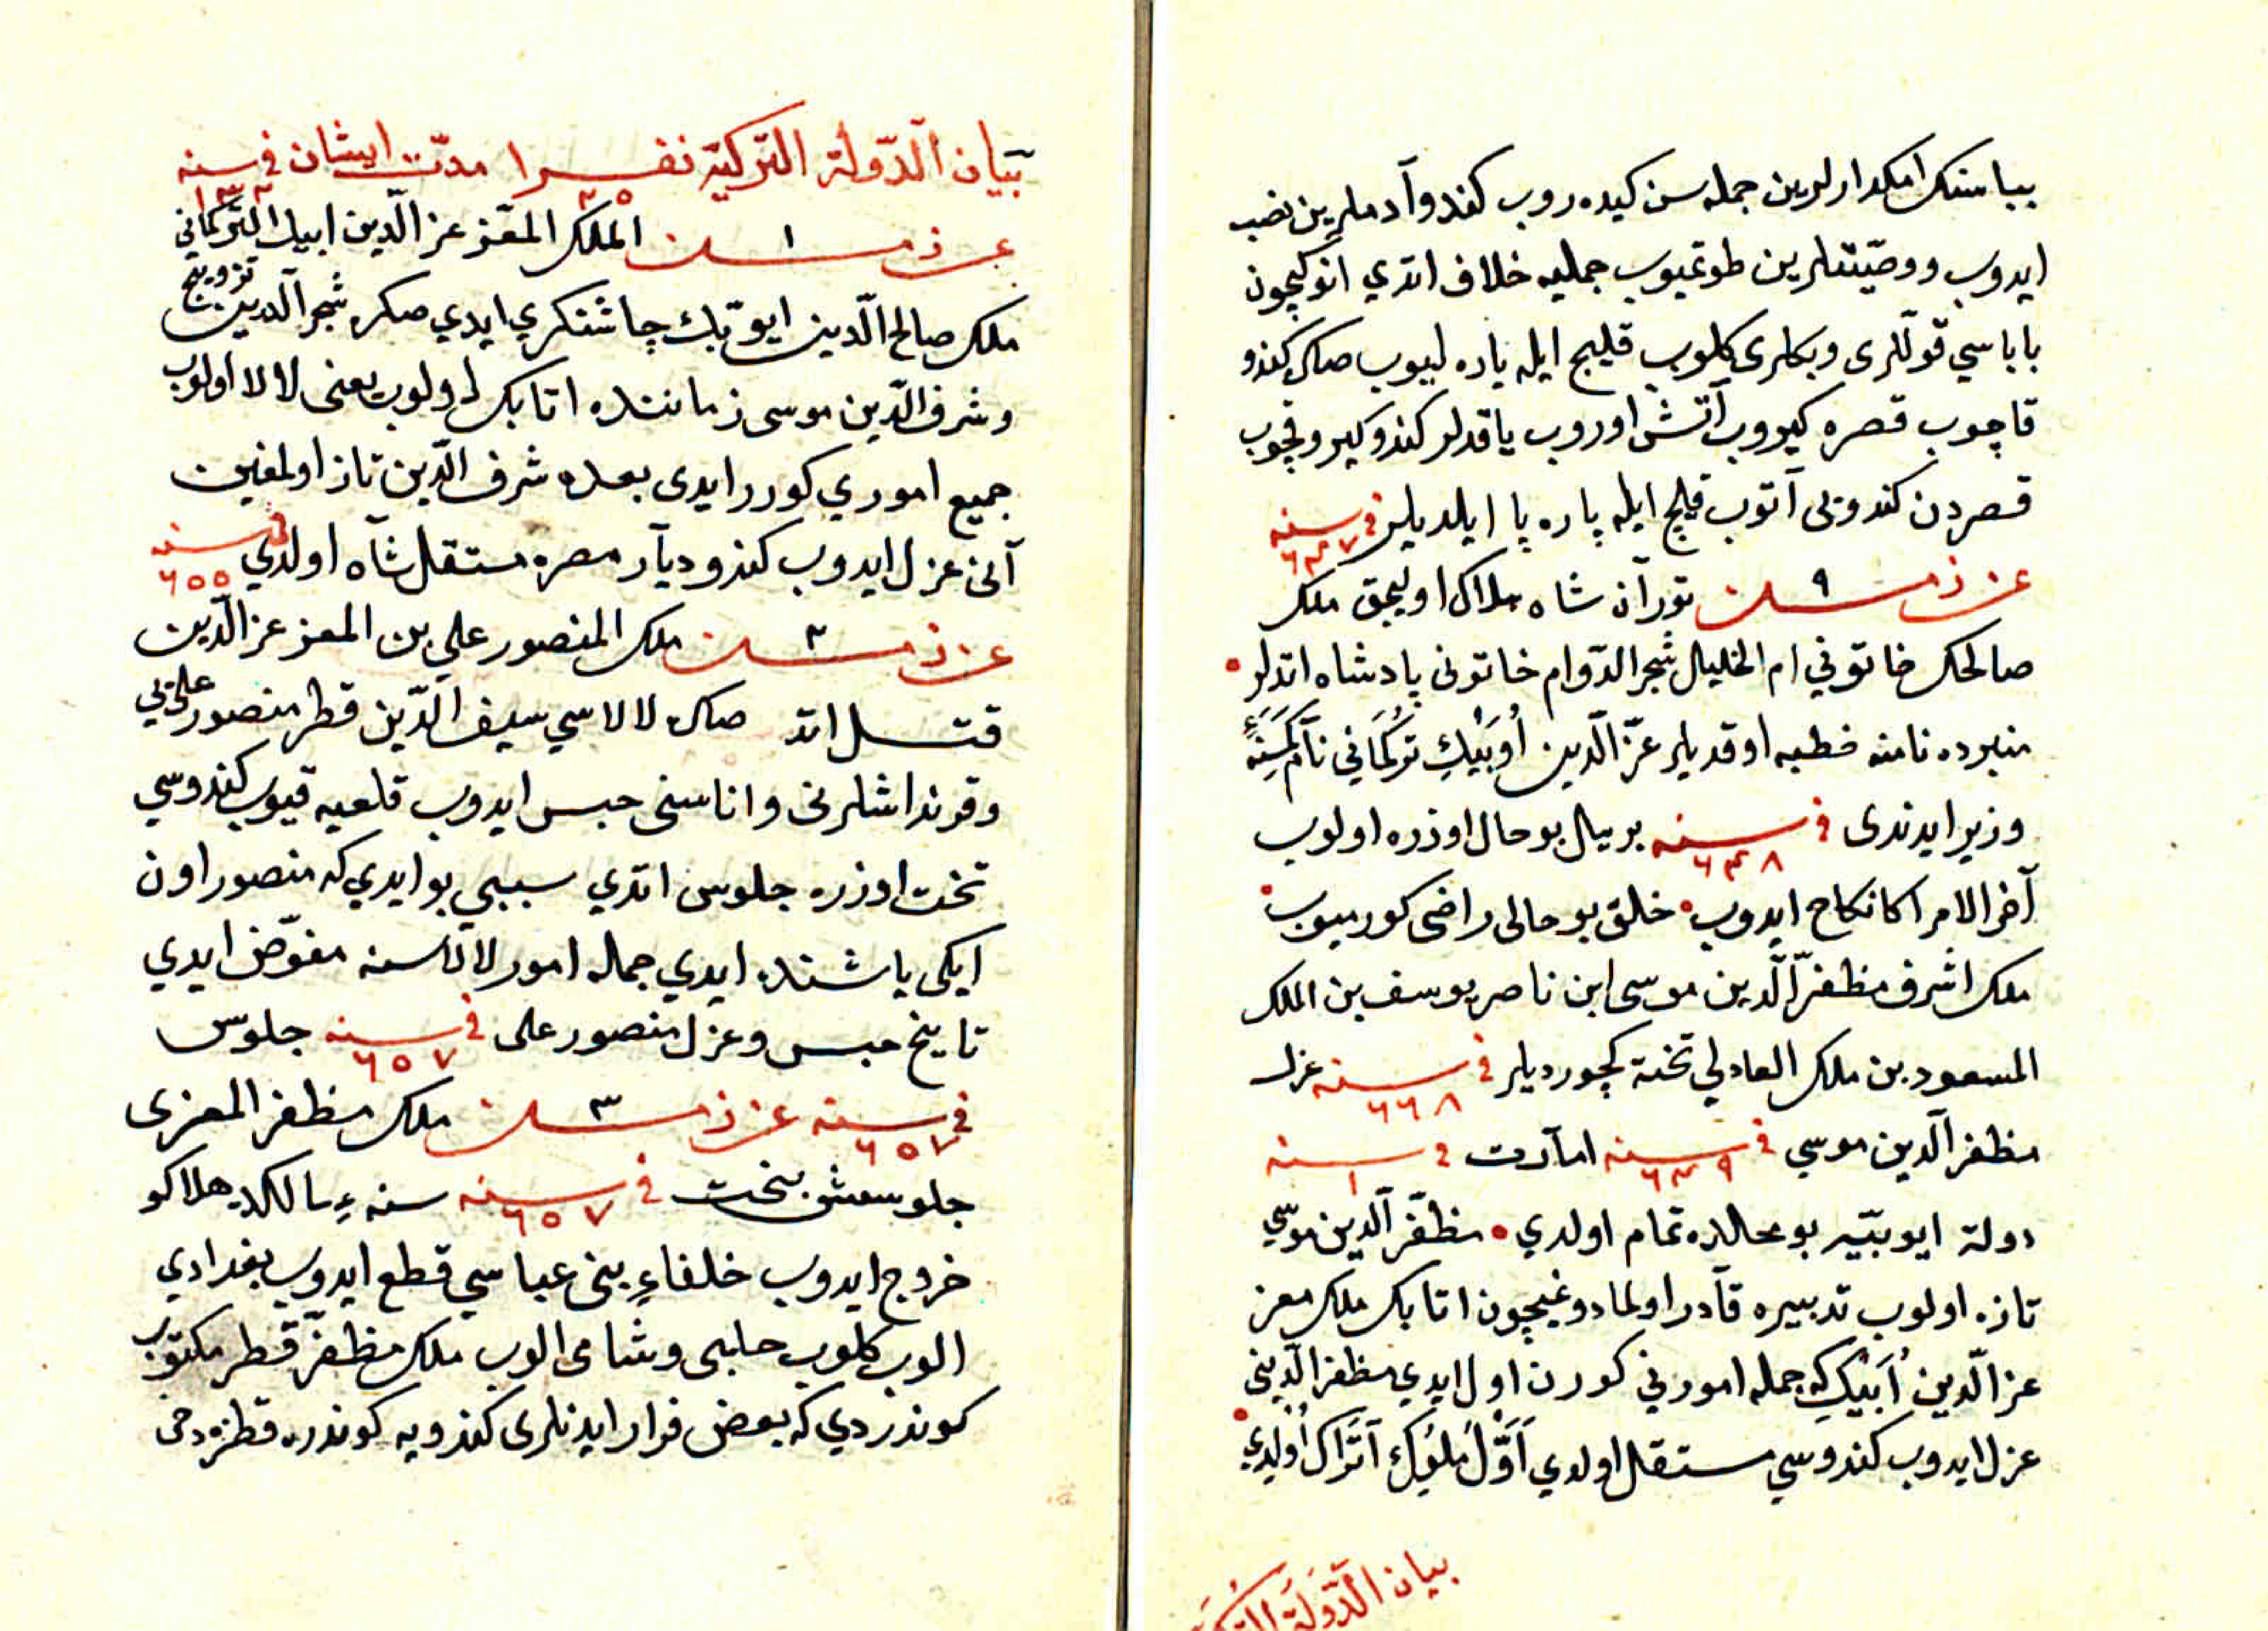 باباسنك امكدارلرین جمله سن كیده روب كندو آدملرین نصب
ایدوب ووصیتلرین طوتمیوب جملیه خلاف اتدي انوكیچون
باباسي قوللری وبكلری كلوب قلیج ایله یاره لیوب صكره كندو
قاچوب قصره كیروب آتش اوروب یاقدلر كندو كیرو قچوب
قصردن كندونی آتوب قلیج ایله پاره پا ایلدیلر فی سنه ٦٤٧
٩ توران شاه هلاك اولیجق ملك
صالحك خاتوني ام الخلیل شجر الدوام خاتونی پادشاه اتدلر
منبرده نامنه خطبه اوقدیلر عزّ الدّین اُوبَیْكِ تركُمَاني نام كمسنه
وزیر ایدندی فی سنه ٦٤٨ بر ییل بو حال اوزره اولوب
آخر الامر اكا نكاح ایدوب خلق بو حالی راضی كورمیوب
ملك اشرف مظفر الّدین موسی ابن ناصر یوسف بن الملك
المسعود بن ملك العادلي تخته كچوردیلر فی سنه ٦٦٨ عزل
مظفر الدین موسي فی سنه ٦٤٩ امارت فی سنه ١
دولة ایوبیّه بو محالده تمام اولدي مظفّر الدین موسي
تازه اولوب تدبیره قادر اولمادوغیچون اتابك ملك معز
عز الّدین اُبَیْكِ كه جمله امورني كورن اول ایدي مظفر الدّینی
عزل ایدوب كندوسي مستقل اولدي اَوَّل مُلوُكِ اَتراك اُولدي
بیان الدَّولَة التركیة
بیان الدّولة التركیة نفر ا ٢٥ مدّت ایشان فی سنه ١٣٢
١ الملك المعّز عز الّدین ایبك التركماني
ملك صالح الّدین ایوّبك چاشنكری ایدي صكره شجر الدرین تزویج
وشرف الدّین موسی زماننده اتابك اولوب یعنی لالا اولوب
جمیع اموري كورر ایدی بعده شرف الدّین تاز اولمغین
آنی عزل ایدوب كندو دیار مصره مستقل شاه اولدي فی سنه ٦٥٥
٢ ملك المنصور علي بن المعز عز الّدین
قتل اتد صكره لالاسي سیف الدّین قطر منصور علی یي
وقرنداشلرنی واناسنی حبس ایدوب قلعیه قیوب كندوسي
تخت اوزره جلوس اتدي سببي بو ایدي كه منصور اون
ایكی یاشنده ایدي جمله امور لالاسنه مفوّض ایدي
تاریخ حبس وعزل منصور علی فی سنه ٦٥٧ جلوس
فی سنه ٦٥٧ ٣ ملك مظفر المعزی
جلوسش بتخت فی سنه ٦٥٧ سنه ءِ سالكده هلاكو
خروج ایدوب خلفاءِ بنی عباسي قطع ایدوب بغدادي
الوب كلوب حلبی وشامی الوب ملك مظفرّ قطر مكتوب
كوندردي كه بعض فرار ایدنلری كندویه كوندره قطزدخی